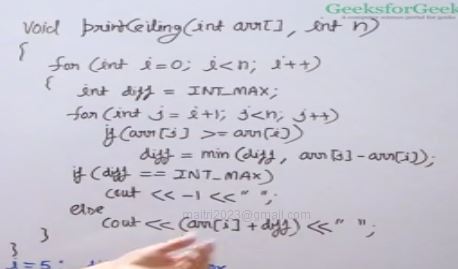 GeeksforGeek
A computer science portal for geeks
void printCeiling(int arr[], int n)
{
for (int i=0; i<n; i++)
{
int diff = INT_MAX;
for (int j = i+1; j<n; j++)
if(arr[j] >= arr[i])
diff = min (diff, arr[j]-arr[i]);
if (diff == INT_MAX)
cout << -1 << " ";
else
cout << (arr[i] + diff) << " ";
maitri2023@gmail.com
}
}
i=5: